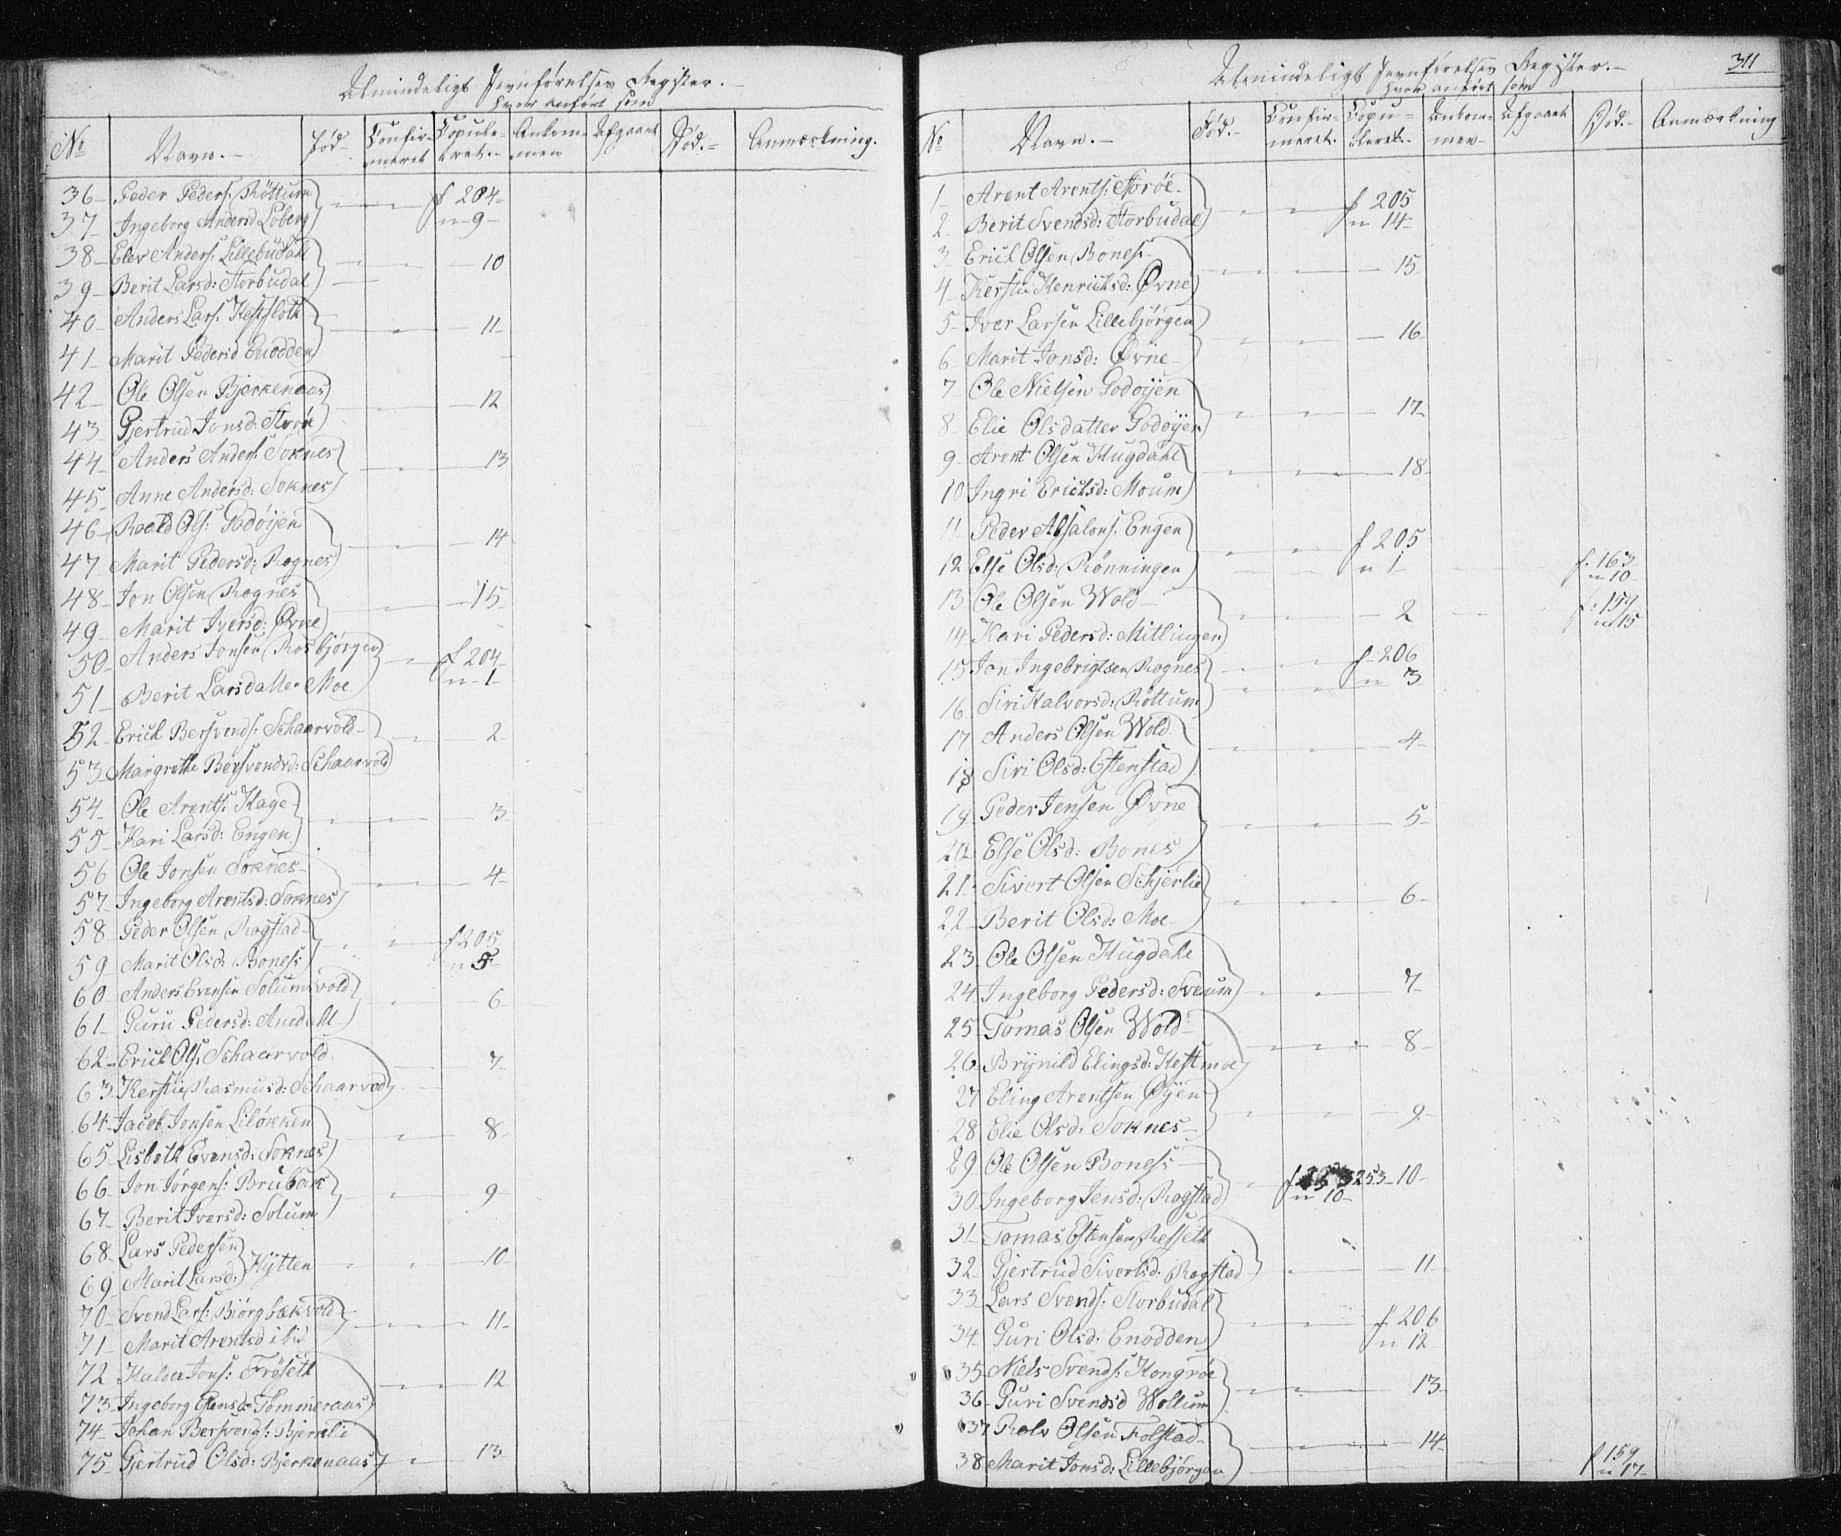 Almindeligt Jevnførelses Register.
hvor anført som
No Navn. Fød. Confirmeret Copuleret. Ankommen Afgaaet Død. Anmærkning.
36 Peder Peders: Røttum f 204
37 Ingeborg Andersd Løberg n 9
38 Elev Anders: Lillebudahl 10
39 Berit Larsd: Storbudal
40 Anders Lars: Hestfloth 11
41 Marit Pedersd Enodden
42 Ole Olsen Bjerkenaas 12
43 Gjertrud Jonsd: Storøe
44 Anders Anders: Soknes 13
45 Anne Andersd: Soknes
46 Roald Ols: Godøijen 14
47 Marit Pedersd: Rognes
48 Jon Olsen Rognes 15
49 Marit Iversd: Øvne
50 Anders Jonsen Rosbjørgen f 204
51 Berit Larsdatter Moe n 1
52 Erick Bersvends: Schaarvold 2
53 Margrethe Bersvendsd: Schaarvold
54 Ole Arents: Hage 3
55 Kari Larsd: Engen
56 Ole Jonsen Soknes 4
57 Ingeborg Arentsd: Soknes
58 Peder Olsen Rogstad f 205
59 Marit Olsd: Boness n 5
60 Anders Evensen Solumsvold 6
61 Guru Pedersd: Amdahl
62 Erick Ols: Schaarvold 7
63 Kerstie Rasmusd: Schaarvold
64 Jacob Jonsen Liløkken 8
65 Lisbeth Evensd: Soknes
66 Jon Jørgens: Brubak 9
67 Berit Iversd: Solum
68 Lars Pedersen 10
69 Marit Larsd: Hÿtten
70 Svend Lars: Biörgbækvold 11
71 Marit Arentsd ibid
72 Haldor Jons: Frøseth 12
73 Ingeborg Elensd: Tømmeraas
74 Johan Bersvends: Bjerklie
75 Gjertrud Olsd: Bjerkenaas 13
Almindeligt Jevnførelses Register. 311
hvor anført som
No Navn. Fød. Confirmeret. Copuleret. Ankommen Afgaaet Død. Anmærkning
1 Arent Arents: Storøe f 205
2 Berit Svendsd: Storbudal n 14
3 Erick Olsen Boness 15
4 Kerstie Henrichsd: Øvne
5 Iver Larsen Lillebjørgen 16
6 Marit Jonsd: Øvne
7 Ole Nielsen Godøijen 17
8 Elie Olsdatter Godøijen
9 Arent Olsen Hugdahl 18
10 Ingri Ericksd: Moum
11 Peder Absalons: Engen f 205
12 Else Olsd: Rønningen n 1 f. 163 n 10
13 Ole Olsen Wold 2 n 15
14 Kari Pedersd: Mitlingen
15 Jon Ingebrigtsen Rognes f 206
16 Siri Halvorsd: Røttum n 3
17 Anders Olsen Wold 4
18 Siri Olsd: Estenstad
19 Peder Jensen Øvne 5
20 Else Olsd: Bones
21 Sivert Olsen Schjerlie 6
22 Berit Olsd: Moe
23 Ole Olsen Hugdahl
24 Ingeborg Pedersd: Sveum 7
25 Tomas Olsen Wold
26 Brÿnild Elingsd: Hestmoe 8
27 Eling Arentsen Øijen
28 Elie Olsd: Soknes 9
29 Ole Olsen Boness 253 10
30 Ingeborg Jensd: Rogstad n 10
31 Tomas Estensen Resseth
32 Gjertrud Sivertsd: Rogstad 11
33 Lars Svends: Storbudal f 206
34 Guri Olsd: Enodden n 12
35 Niels Svends: Kongrøe
36 Guri Svendsd Wollum 13
37 Rolv Olsen Folstad 14
38 Marit Jonsd: Lillebjørgen f 159 n 17